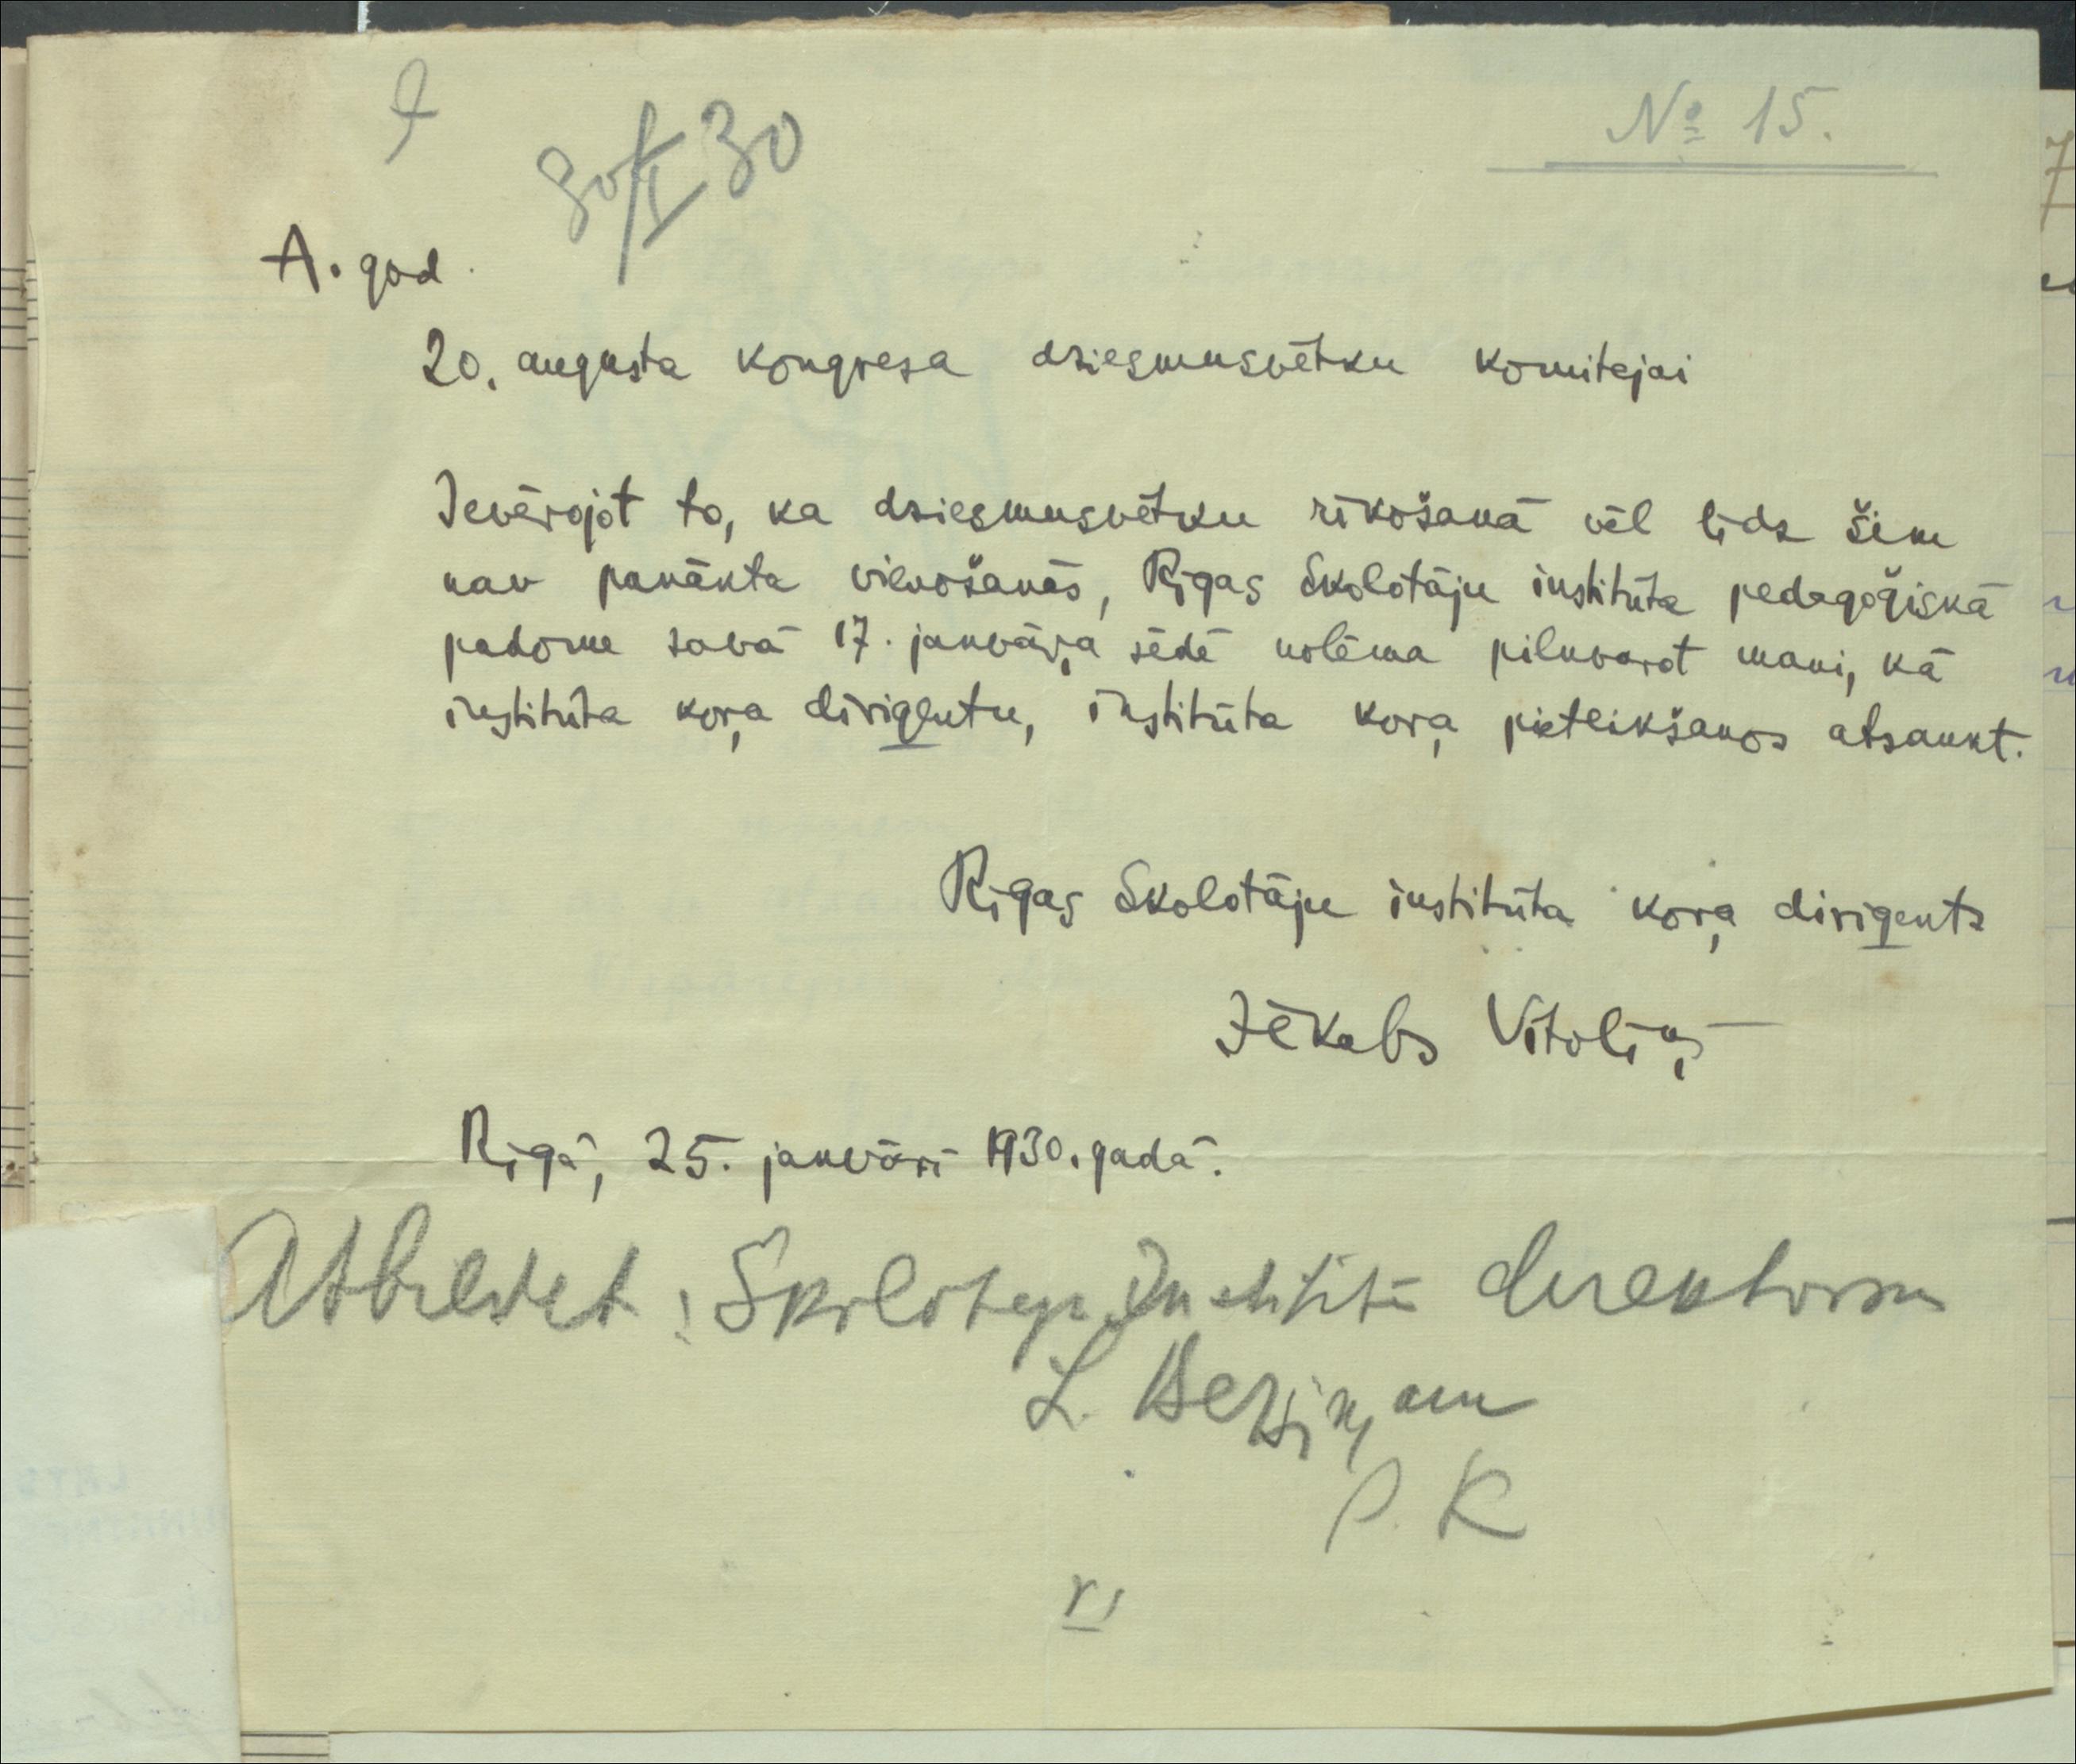 30/I 30
№ 15.
A. god.
20. augusta kongresa dziesmusvētku komitejai
Ievērojot to, ka dziesmusvētku rīkošanā vēl līdz šim
nav panākta vienošanās, Rīgas Skolotāju institūta pedagoģiskā
padome savā 17. janvāŗa sēdē nolēma pilnvarot mani, kā
institūta koŗa diriģentu, institūta koŗa pieteikšanos atsaukt.
Rīgas Skolotāju institūta koŗa diriģents
Jēkabs Vītoliņš
Rīgā, 25. janvārī 1930. gadā.
Atbildet: Skolotaju Institūta direktoram
L. Berziņam
P. K